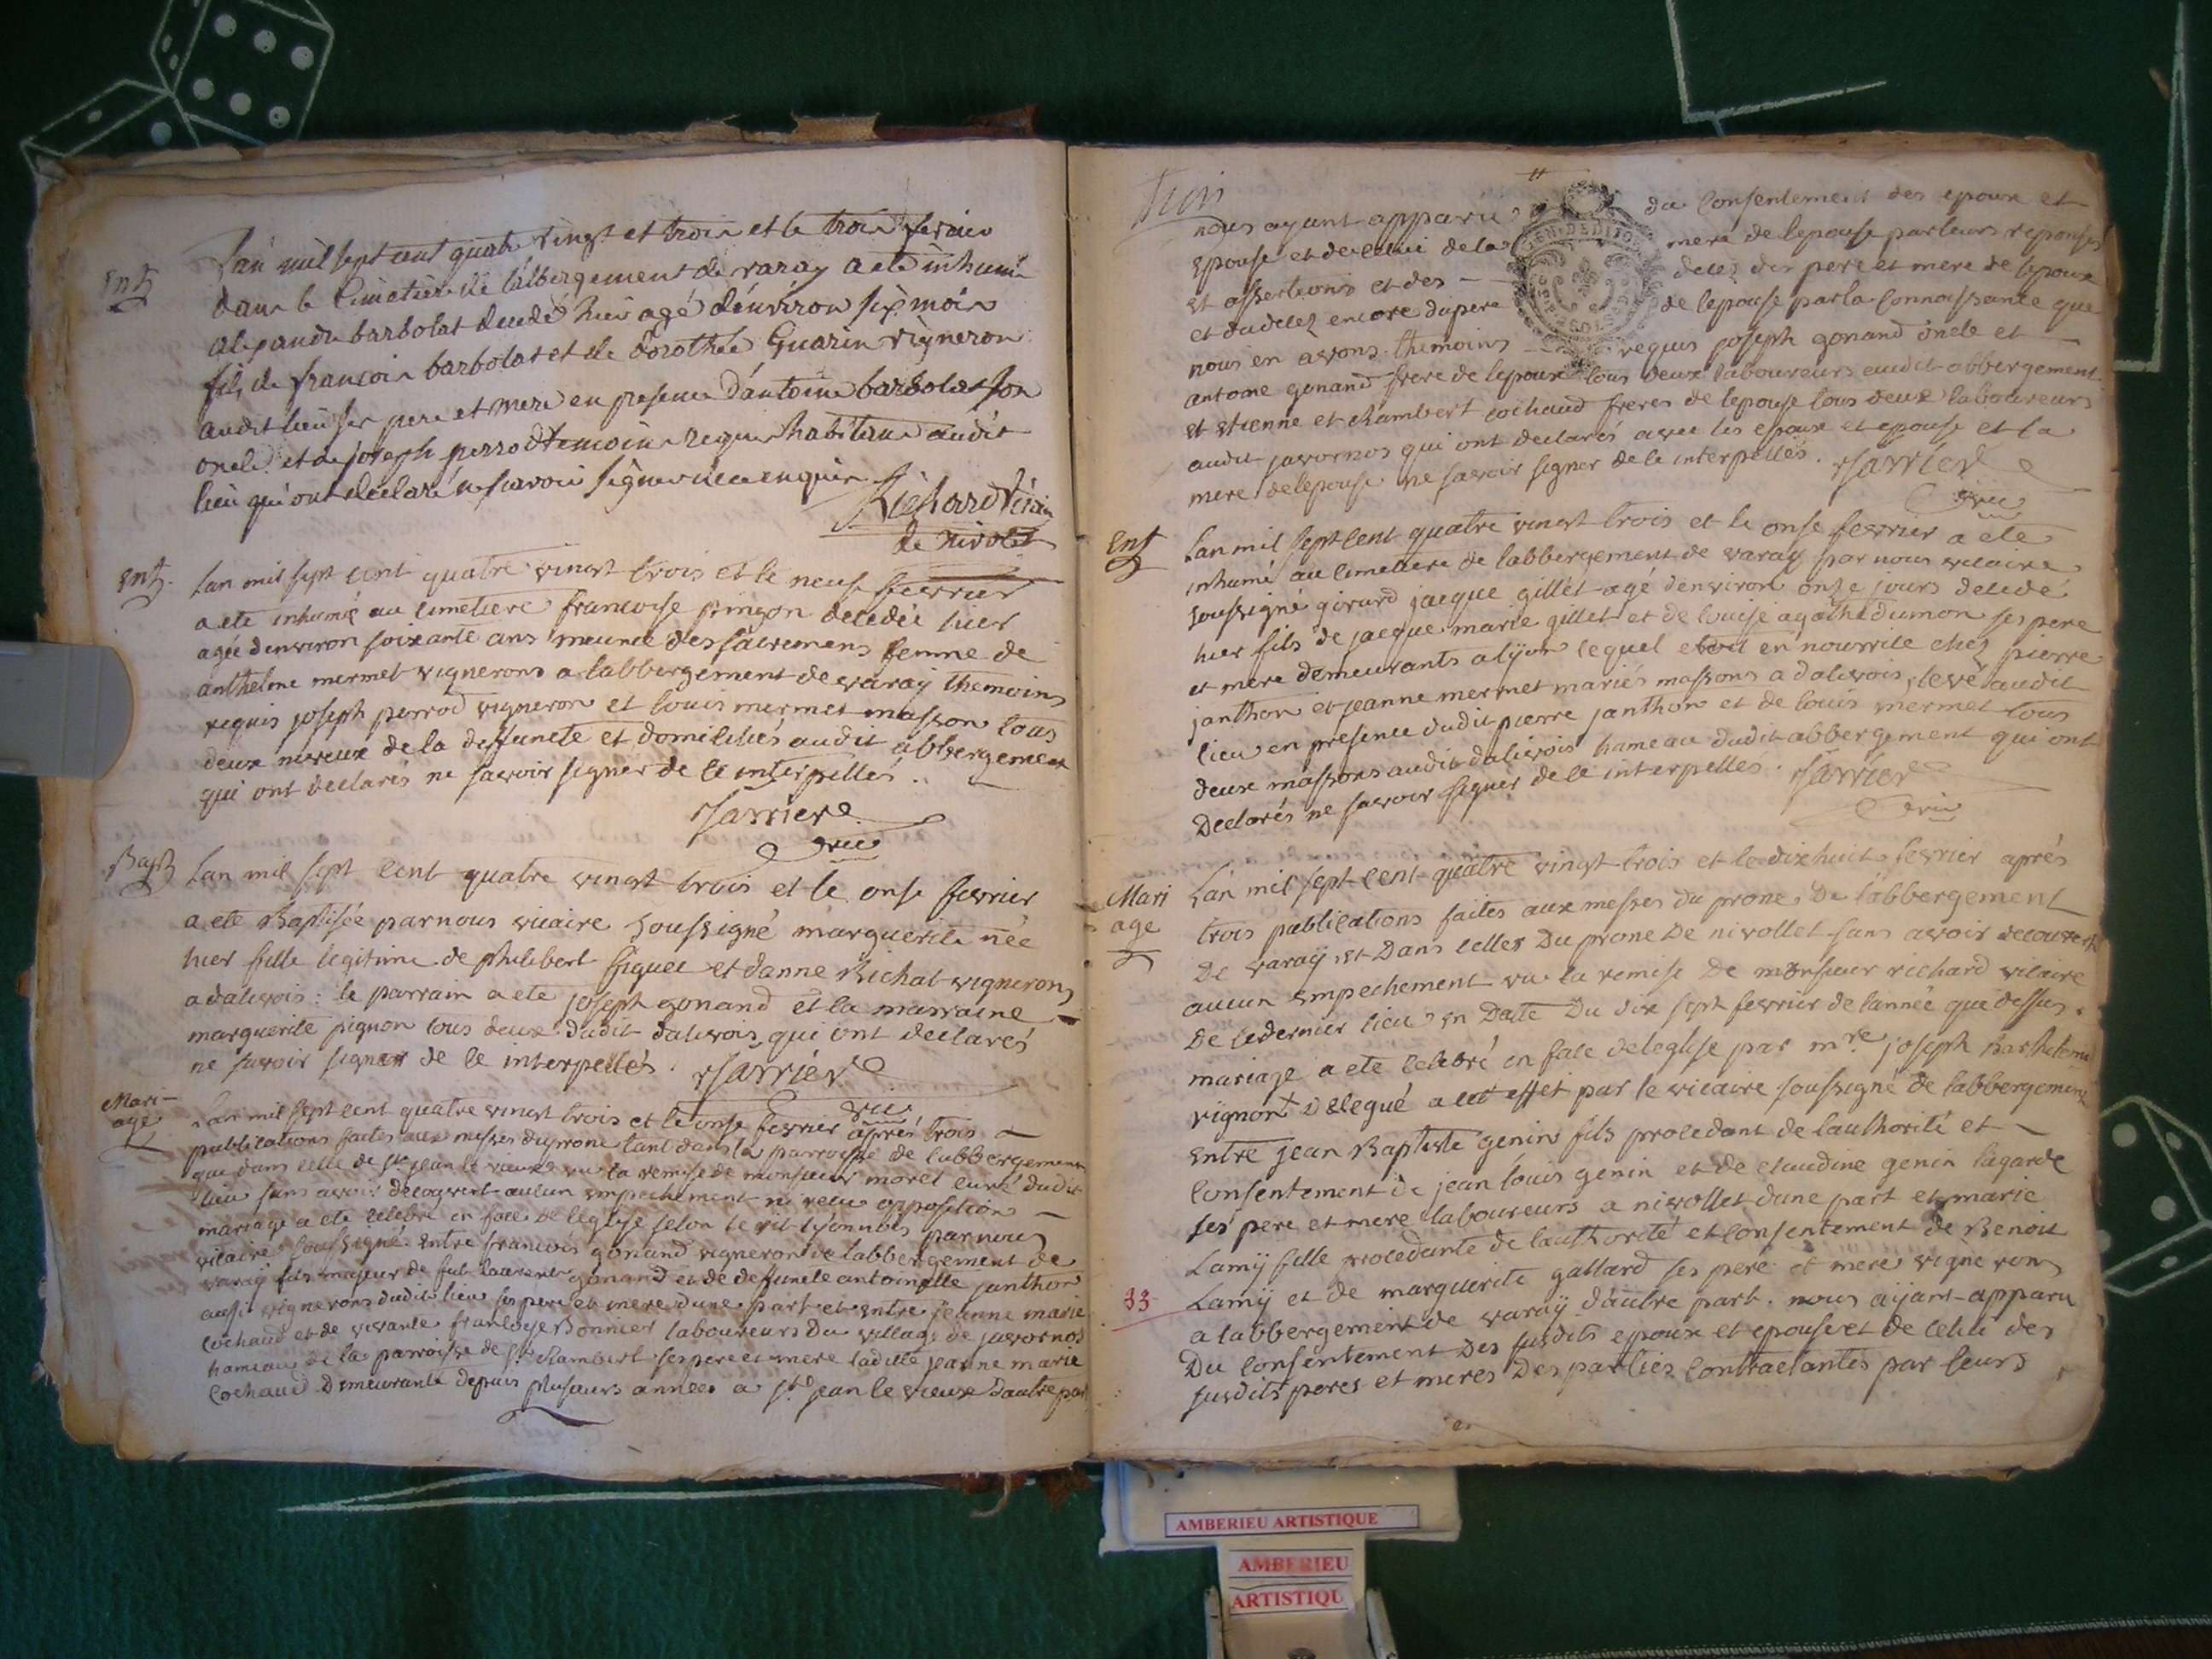 Ent
Lan mil sept cent quatre vingt et trois et le trois fevrier
dans le Cimetiere de labbergement de varay a eté inhumé
alexandre barbolat decedé hier agé denviron six mois
fils de francois barbolat et de dorothée Guarin vigneron
audit lieu ses pere et mere en presence dantoine barbolat son
oncle et de joseph perrod temoins requis habitans audit
lieu qui ont declaré ne scavoir signer de ce enquis
Richard vicaire
de nivolet
Ent.
Lan mil sept cent quatre vingt trois et le neuf fevrier
a ete inhumé au cimetiere francoise pinson decedée hier
agée denviron soixante ans meunie des sacremens femme de
anthelme mermet vignerons a labbergement de varay themoins
requis joseph perrod vigneron et louis mermet masson tous
deux neveux de la deffuncte et domiciliés audit abbergement
qui ont declarés ne savoir signer de ce interpellés.
Sarrier
vic
Bapt
Lan mil sept cent quatre vingt trois et le onse fevrier
a ete Baptisée par nous vicaire soussigné marguerite née
hier fille legitime de philibert figuet et danne Richat vignerons
a dalivois: le parrain a ete joseph gonand et la marraine
marguerite pignon tous deux dudit dalivois qui ont declarés
ne savoir signer de ce interpellés. Sarrier
vic
Mari-
age
Lan mil sept cent quatre vingt trois et le onse fevrier aprés trois
publications faites aux messes du prone tant dans la parroisse de labbergement
que dans celle de st jean le vieux vu la remise de monsieur morel curé dudit
lieu sans avoir decouvert aucun empechement ni recu opposition
mariage a ete celebré en face de leglise selon le rit lyonnois par nous
vicaire soussigné entre francois gonand vigneron de labbergement de
varay fils majeur de fut laurent gonand et de deffuncte antoinette janthon
aussi vignerons dudit lieu ses pere et mere dune part et entre jeanne marie
cochaud et de vivante francoise Bonnier laboureurs du village de javornos
hameau de la parroisse de st Rambert ses pere et mere ladite jeanne marie
cochaud demeurante depuis plusieurs années a st jean le vieux dautre part
trois
nous ayant apparu du consentement des epoux et
epouse et de celui de la mere de lepouse par leurs reponses
et assertions et des deces des pere et mere de lepoux
et du deces encore du pere de lepouse par la connoissance que
nous en avons themoins requis joseph gonand oncle et
antoine gonand frere de lepoux tous deux laboureurs audit abbergement
et etienne et Rambert cochaud freres de lepouse tous deux laboureurs
audit javornos qui ont declarés avec les epoux et epouse et la
mere de lepouse ne savoir signer de ce interpellés. Sarrier
vic
Ent
Lan mil sept cent quatre vingt trois et le onse fevrier a ete
inhumé au cimetiere de labbergement de varay par nous vicaire
soussigné girard jacque gillet agé denviron onze jours decedé
hier fils de jacque marie gillet et de louise agathe dumon ses pere
et mere demeurants a lyon lequel etoit en nourrice chez pierre
janthon et jeanne mermet mariés massons a dalivois, levé audit
lieu en presence dudit pierre janthon et de louis mermet tous
deux massons audit dalivois hameau dudit abbergement qui ont
declarés ne savoir signer de ce interpelles. Sarrier
vic
Mari
age
Lan mil sept cent quatre vingt trois et le dixhuit fevrier aprés
trois publications faites aux messes du prone De labbergement
De varay et Dans celles Du prone De nivollet sans avoir decouvert
aucun empechement vu la remise De monsieur richard vicaire
De ce dernier lieu en Datte Du dix sept fevrier de lannée que dessus.
mariage a ete celebré en face de leglise par mre joseph Barthelemi
vignon Delegué a cet effet par le vicaire soussigné de labbergement
entre jean Baptiste genin fils procedant de lauthorité et
consentement de jean louis genin et de claudine genin lagarde
ses pere et mere laboureurs a nivollet dune part et marie
Lamÿ fille procedante de lauthorité et consentement de Benoit
33 Lamÿ et de marguerite gallard ses pere et mere vignerons
a labbergement de varaÿ dautre part. nous aÿant apparu
Du consentement Des susdits epoux et epouse et de celui des
susdits peres et meres Des parties contractantes par leurs
AMBERIEU ARTISTIQUE
AMBERIEU
ARTISTIQU